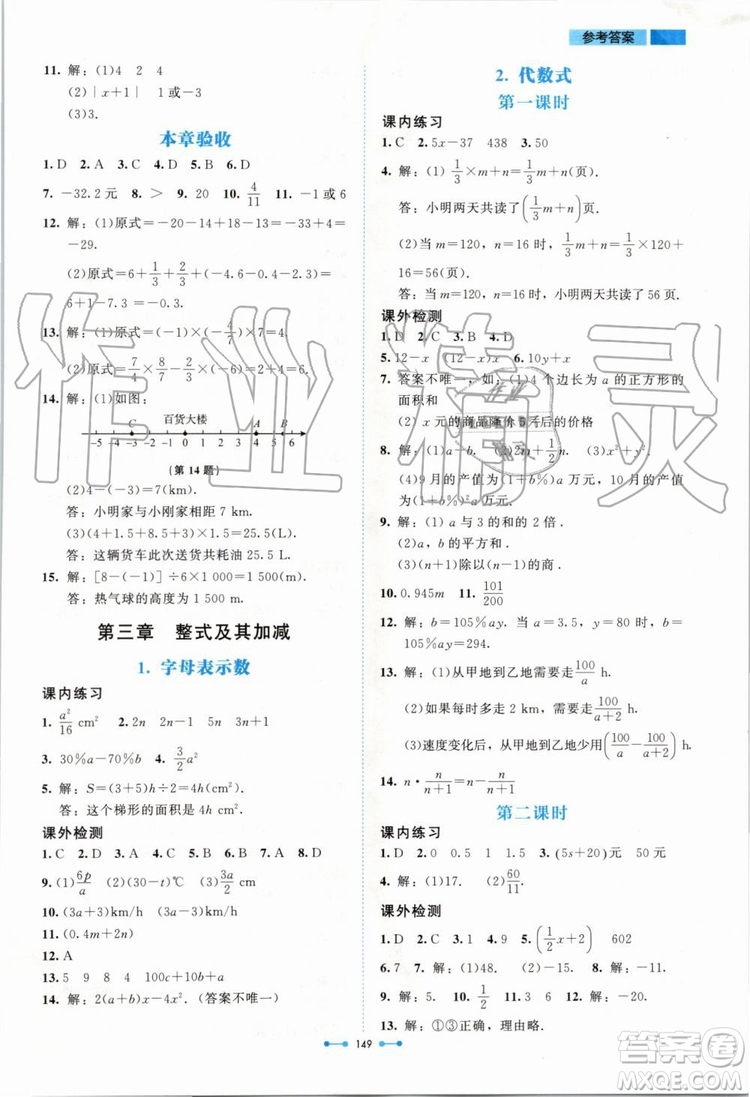 参考答案
11. 解：(1)4　2　4
(2)|x+1|　1或-3
(3)3.
本章验收
1. D　2. A　3. C　4. D　5. B　6. D
7. -32.2元　8. >　9. 20　10. 4/11　11. -1或6
12. 解：(1)原式=-20-14+18-13=-20+4+(-13)=
-29.
(2)原式=6+1/3+2/3+(-4-0.3-3)=
6+1-7.3=-0.3
13. 解：(1)原式=(-1)×(-4/7)×7=4
14. 解：(1)如图：
百货大楼
C A B
-5 -4 -3 -2 -1 0 1 2 3 4 5 6
(第14题)
(2)4-(-3)=7(km).
答：小明家与小刚家相距7 km.
(3)(4+1.5+8.5+3)×1.5=25.5(L)
答：这辆货车此次送货共耗油25.5 L.
15. 解：[8-(-1)]÷6×1 000=1 500(m).
答：热气球的高度为1 500 m.
第三章　整式及其加减
1. 字母表示数
课内练习
1. a²/16 cm²　2. 2n　2n-1　5n　3n+1
3. 30%a-70%b　4. 3/2 a²
5. 解：S=(3+5)h÷2=4h(cm²).
答：这个梯形的面积是4h cm².
课外检测
1. C　2. D　3. A　4. D　5. B　6. B　7. A　8. D
9. (1)6p/a　(2)(30-t)℃　(3)a/5-a/6
10. (3a+3)km/h　(3a-3)km/h
11. (0.4m+2n)
12. A
13. 5　9　8　4　(20-4x)
14. 解：2(a+b)x-4x².(答案不唯一)
2. 代数式
第一课时
课内练习
1. C　2. 5x-37　438　3. 50
4. 解：(1)1/3×m+n=1/3 m+n(页).
答：小明两天共读了(1/3 m+n)页.
(2)当m=120，n=16时，1/3 m+n=1/3×120+
16=56(页).
答：当m=120，n=16时，小明两天共读了56页.
课外检测
1. D　2. C　3. B　4. D
5. 12-x　6. 10y+x
7. 答案不唯一，如：(1)4个边长为a的正方形的
面积和
(2)x元的商品降价后的价格
(3)x²+y².
(4)9月的产值为(1-b%)a万元，10月的产值
为(1-b%)²a万元.
9. 解：(1)a与3的和的2倍.
(2)a，b的平方和.
(3)c除以a与b的和的商.
10. 0.945m　11. 101/200
12. 解：b=105%a，当a=3.5，a=280时，
b=105%a=294.
13. 解：(1)从甲地到乙地需要走100/a h.
(2)如果每时多走2 km，需要走100/(a+2) h.
(3)速度变化后，从甲地到乙地少用(100/a-100/(a+2)) h.
14. n·n/(n+1)=n-n/(n+1)
第二课时
课内练习
1. D　2. 0　0.5　1　1.5　3. (5s+20)元　50元
4. 解：(1)17.　(2)60/11.
课外检测
1. D　2. C　3. 1　4. 9　5. (1/2 x+2)　602
6. 7　7. 解：(1)48.　(2)-15.
9. 解：5.　10. 解：1/2.　11. 解：9.　12. 解：-20.
13. 解：①③正确，理由略.
149
作业精灵
答案圈
MXQE.COM